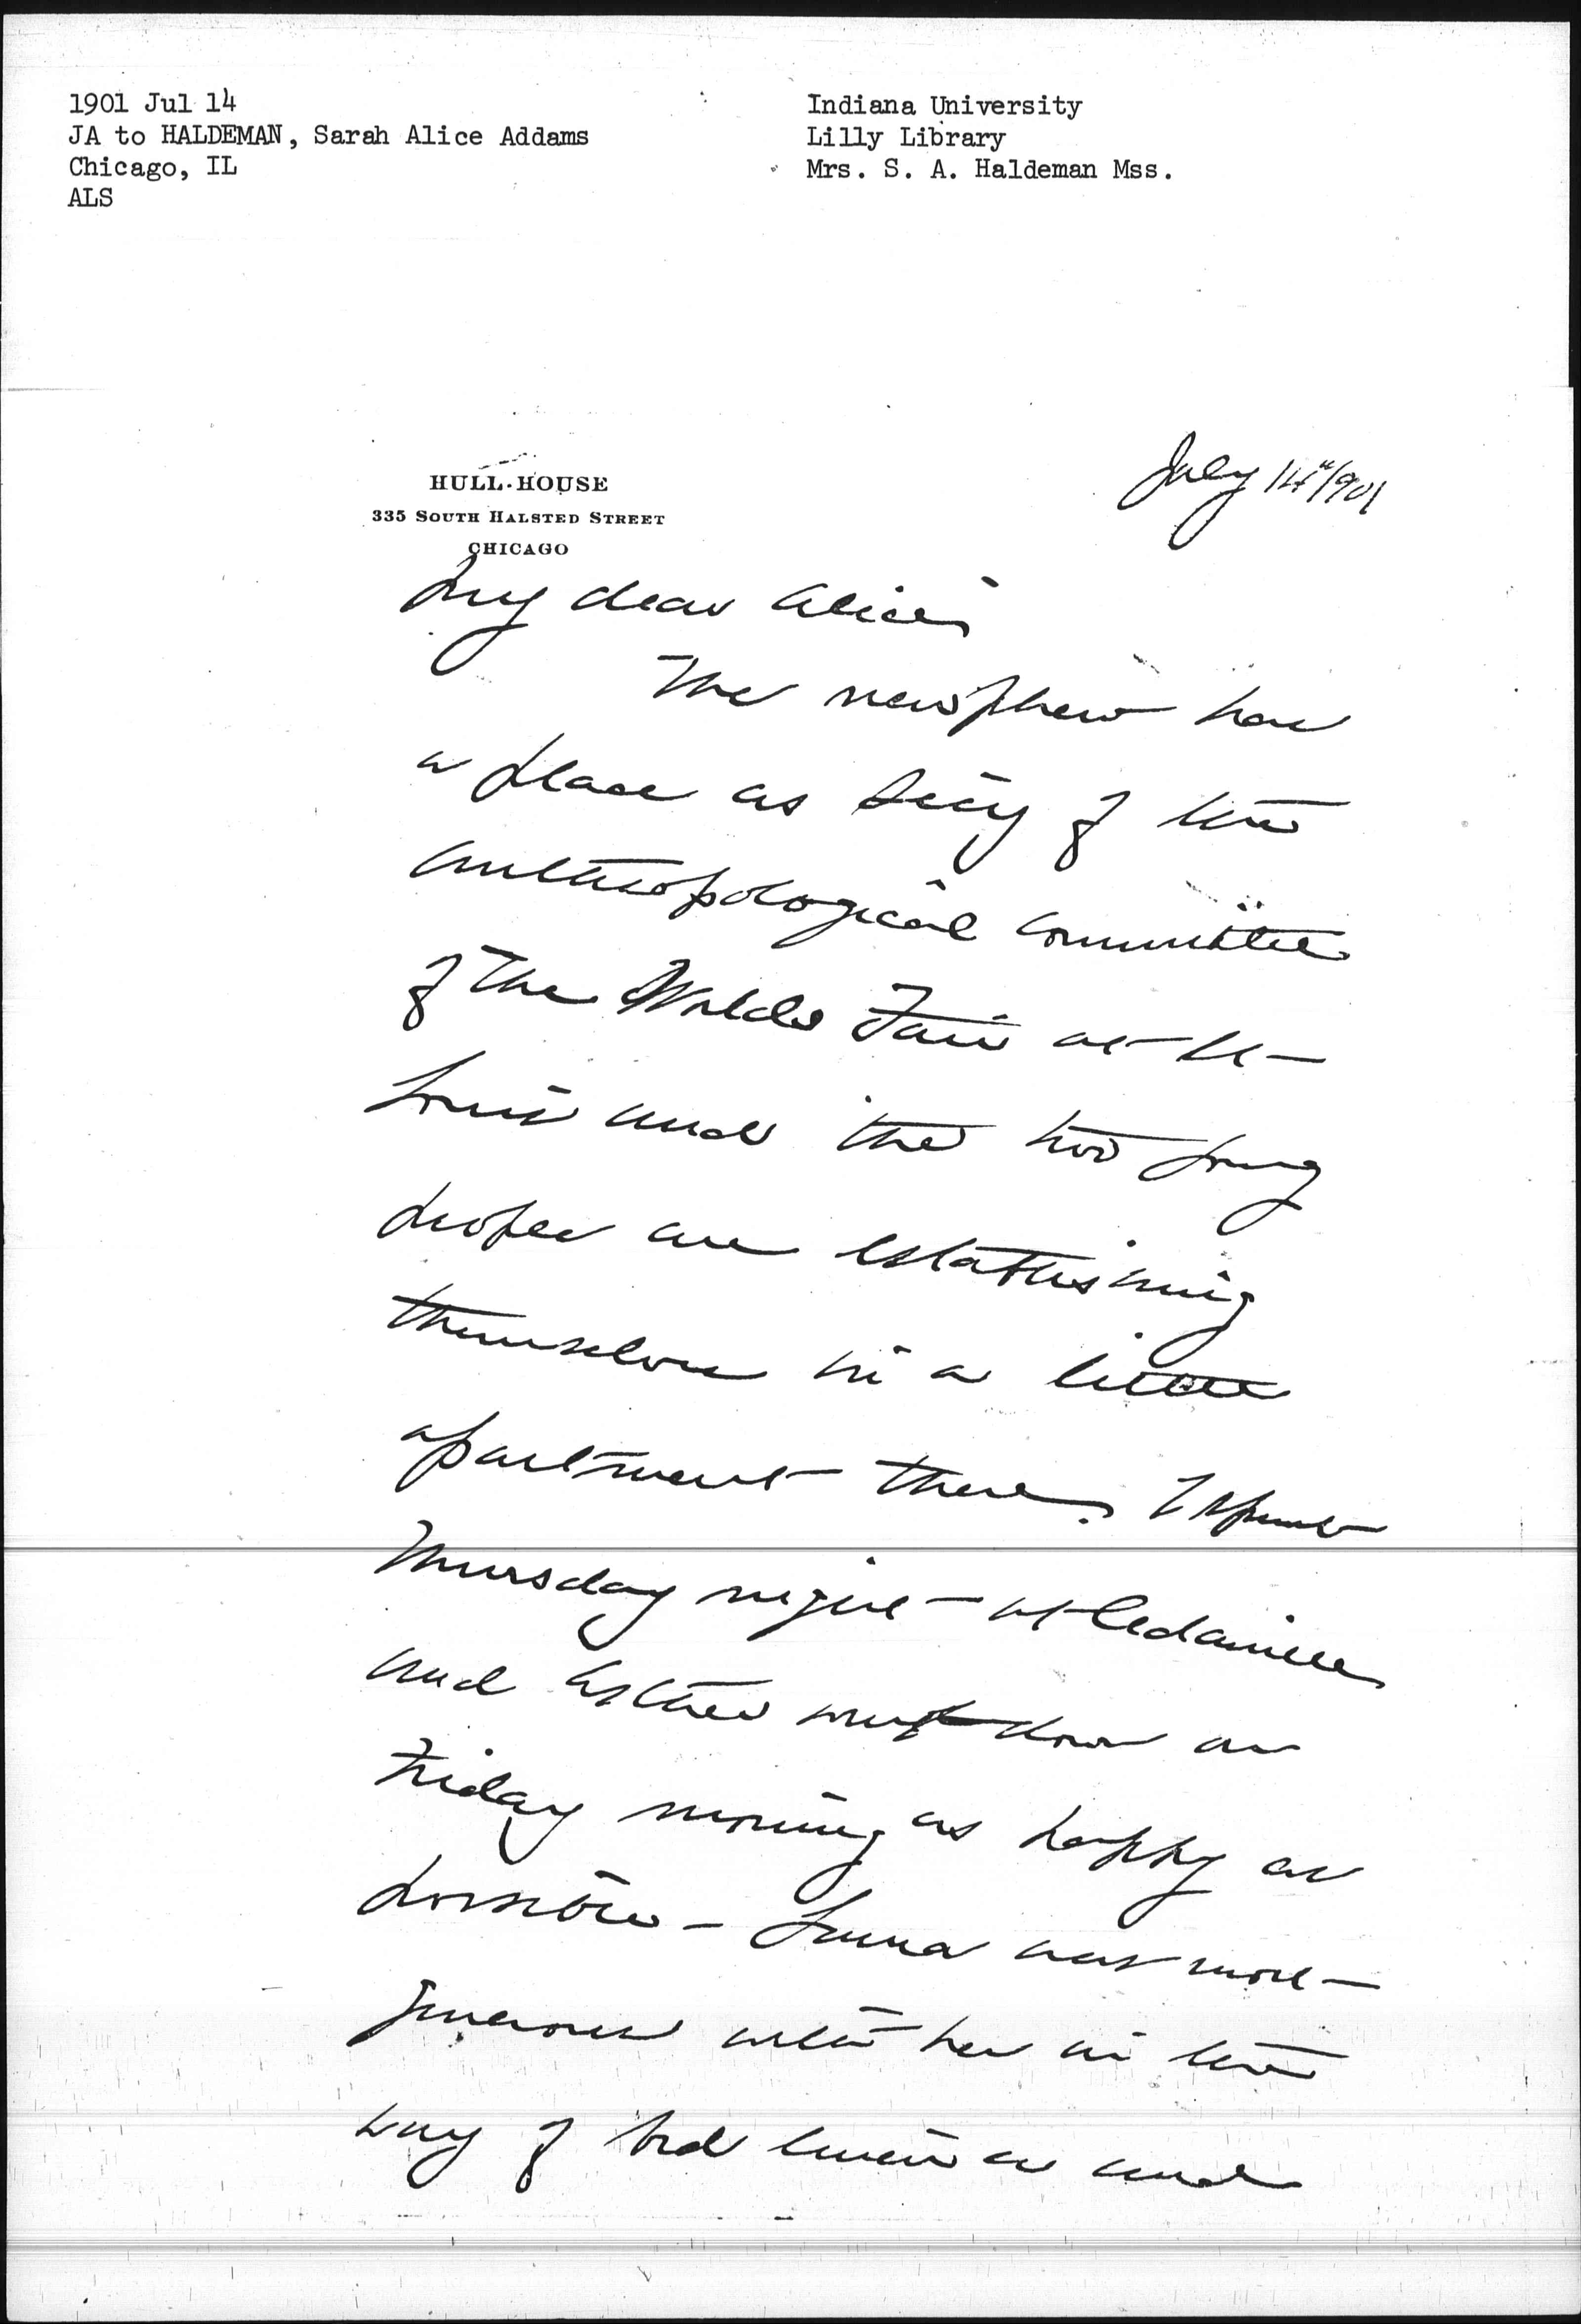 1901 Jul 14
JA to HALDEMAN, Sarah Alice Addams
Chicago, IL
ALS
Indiana University
Lilly Library
Mrs. S. A. Haldeman Mss.
HULL-HOUSE
335 SOUTH HALSTED STREET
CHICAGO
July 14"/901
My dear Alice,
The newphew has
a place as Sec'y of the
anthropological committee
of the Worlds Fair at St
Louis and the two young
people are establishing
themselves in a little
apartment there. I spent
Thursday night at Cedarville
and Esther went down on
Friday morning as happy as
possible - Laura was most
generous with her in the
way of bed linen and